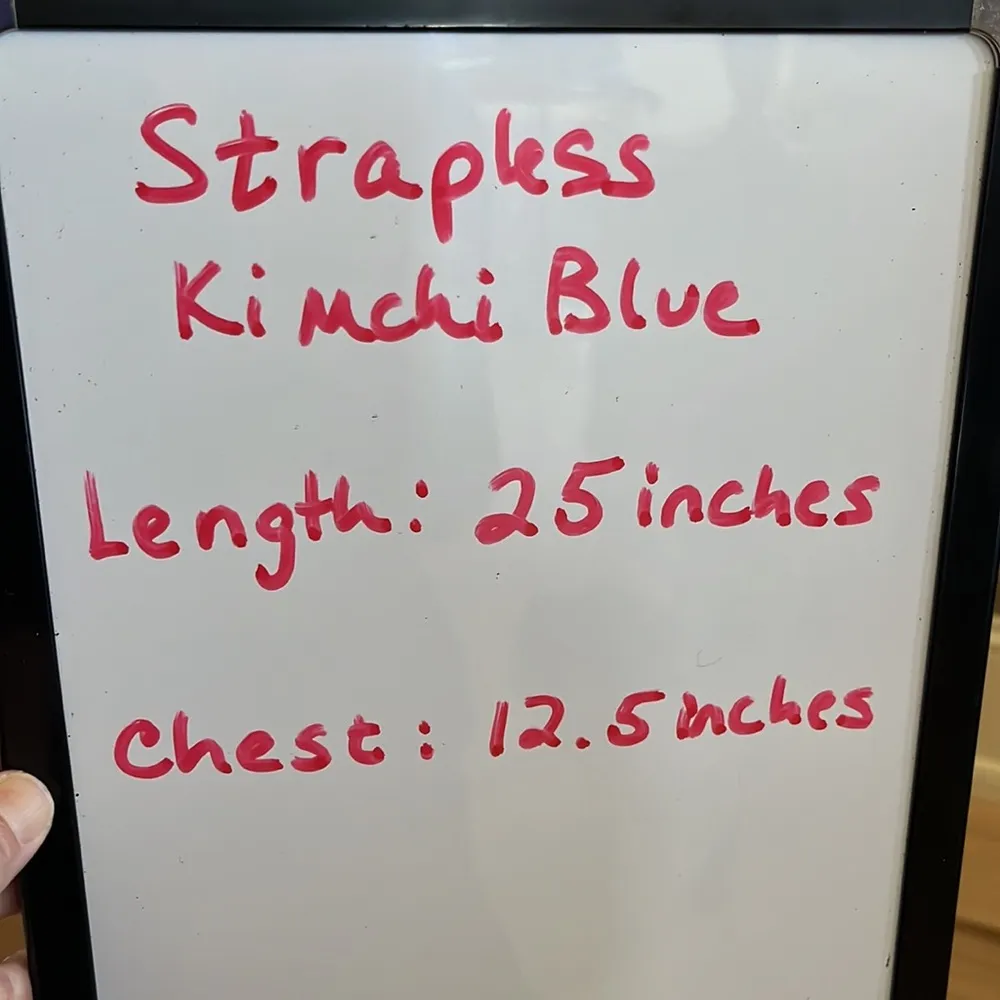 Strapless
Kimchi Blue
Length: 25 inches
Chest: 12.5 inches